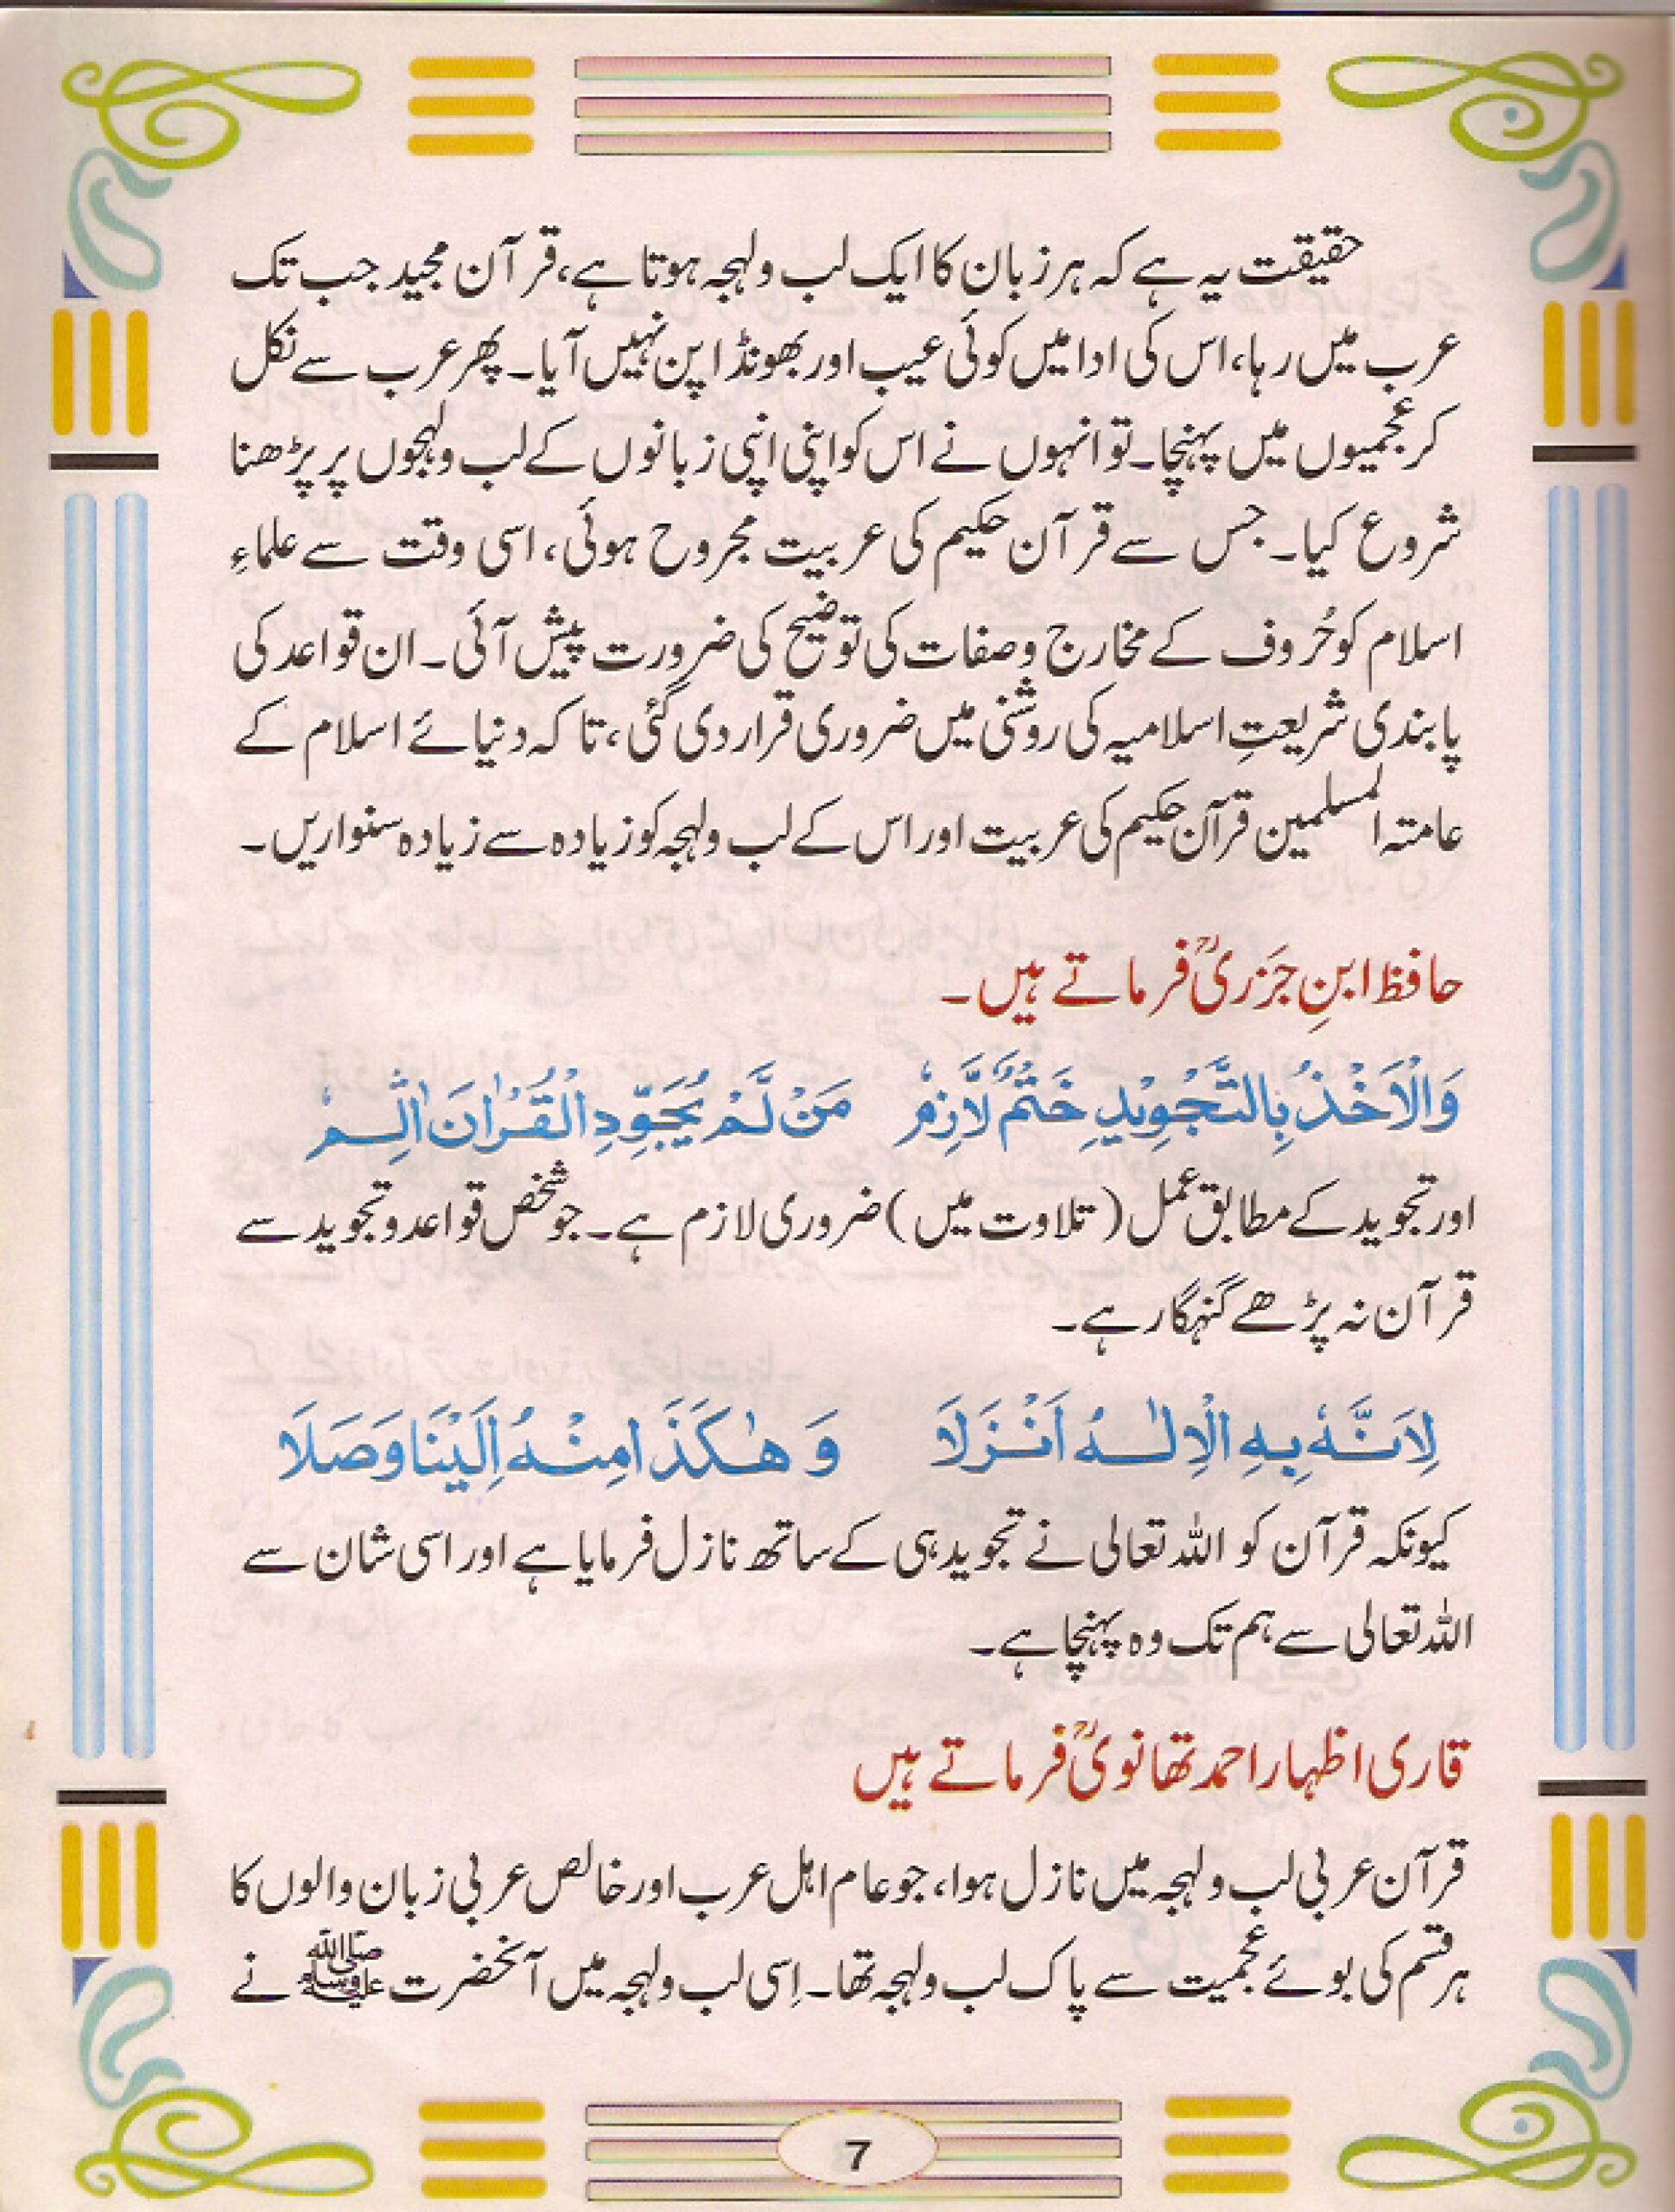 حقیقت یہ ہے کہ ہر زبان کا ایک لب ولہجہ ہوتا ہے، قرآن مجید جب تک
عرب میں رہا، اس کی ادا میں کوئی عیب اور بھونڈا پن نہیں آیا۔ پھر عرب سے نکل
کر عجمیوں میں پہنچا۔ تو انہوں نے اس کو اپنی اپنی زبانوں کے لب ولہجوں پر پڑھنا
شروع کیا۔ جس سے قرآن حکیم کی عربیت مجروح ہوئی، اسی وقت سے علماءِ
اسلام کو حُروف کے مخارج وصفات کی توضیح کی ضرورت پیش آئی۔ ان قواعد کی
پابندی شریعتِ اسلامیہ کی روشنی میں ضروری قرار دی گئی، تاکہ دنیائے اسلام کے
عامتہ المسلمین قرآن حکیم کی عربیت اور اس کے لب ولہجہ کو زیادہ سے زیادہ سنواریں۔
حافظ ابنِ جَزَریؒ فرماتے ہیں۔
وَالْاَخْذُ بِالتَّجْوِیْدِ خَتْمٌ لَّازِمٗ مَنْ لَّمْ یُجَوِّدِ الْقُرْاٰنَ اٰثِمٗ
اور تجوید کے مطابق عمل (تلاوت میں) ضروری لازم ہے۔ جو شخص قواعد و تجوید سے
قرآن نہ پڑھے گنہگار ہے۔
لِاَنَّهٗ بِهِ الْاِلٰهُ اَنْزَلَا وَهٰكَذَا مِنْهُ اِلَیْنَا وَصَلَا
کیونکہ قرآن کو اللہ تعالی نے تجوید ہی کے ساتھ نازل فرمایا ہے اور اسی شان سے
اللہ تعالی سے ہم تک وہ پہنچا ہے۔
قاری اظہار احمد تھانویؒ فرماتے ہیں
قرآن عربی لب ولہجہ میں نازل ہوا، جو عام اہل عرب اور خالص عربی زبان والوں کا
ہر قسم کی بوئے عجمیت سے پاک لب ولہجہ تھا۔ اِسی لب ولہجہ میں آنحضرت ﷺ نے
7